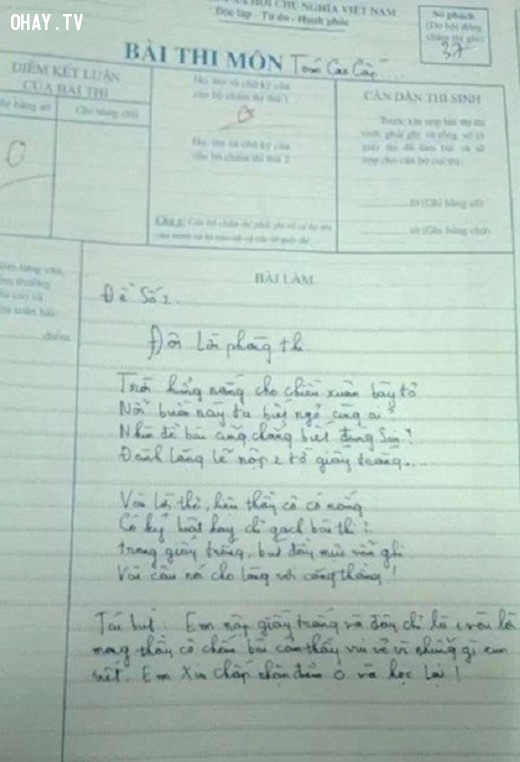 OHAY.TV
HỘI CHỦ NGHĨA VIỆT NAM
Độc lập - Tự do - Hạnh phúc
Số phách
(Do hội đồng
chấm thi ghi)
37
BÀI THI MÔN Toán Cao Cấp
ĐIỂM KẾT LUẬN
CỦA BÀI THI
Ghi bằng chữ
0
Họ, tên và chữ ký của
cán bộ chấm thi thứ 1
Họ, tên và chữ ký của
cán bộ chấm thi thứ 2
CẦN DẶN THÍ SINH
Trước khi nộp bài thi thí
sinh phải ghi rõ tổng số tờ
giấy thi đã làm bài và số
tờ (Ghi bằng số)
tờ (Ghi bằng chữ)
điểm
BÀI LÀM
Đề số 2.
Đôi lời phòng thi
Trời hửng nắng cho chiều xuân bày tỏ
Nỗi buồn này ta biết ngỏ cùng ai?
Nhìn đề bài cũng chẳng biết đúng sai?
Đành lặng lẽ nộp 2 tờ giấy trắng...
Vài lời thề, liệu thầy cô có mắng
Có kỷ luật hay chỉ gạch bài thi?
trong giấy trắng, bút đầy mực vẫn ghi
Vài câu nói cho lòng vơi căng thẳng!
Tái bút. Em nộp giấy trắng và đây chỉ là vài lời
mong thầy cô chấm bài cảm thấy vui vẻ vì những gì em
viết. Em xin chấp nhận điểm 0 và học lại!